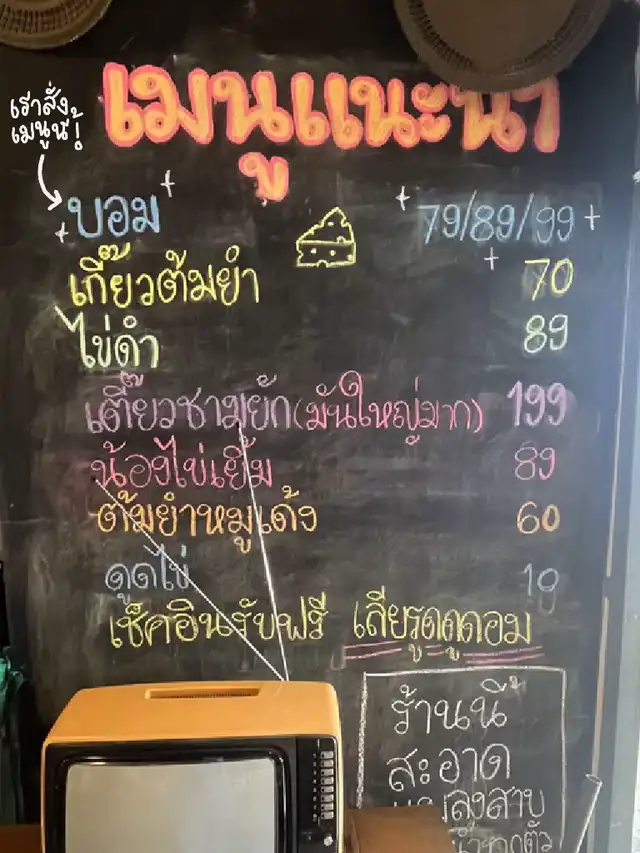 เมนูแนะนำ
เราสั่ง
เมนูนี้!
บอม 79/89/99
เกี๊ยวต้มยำ 70
ไข่ดำ 89
เตี๊ยวชามยัก(มันใหญ่มาก) 199
น้องไข่เยิ้ม 89
ต้มยำหมูเด้ง 60
ดูดไข่ 10
เช็คอินรับฟรี เลียรูดดูดอม
ร้านนี้
สะอาด
แมลงสาบ